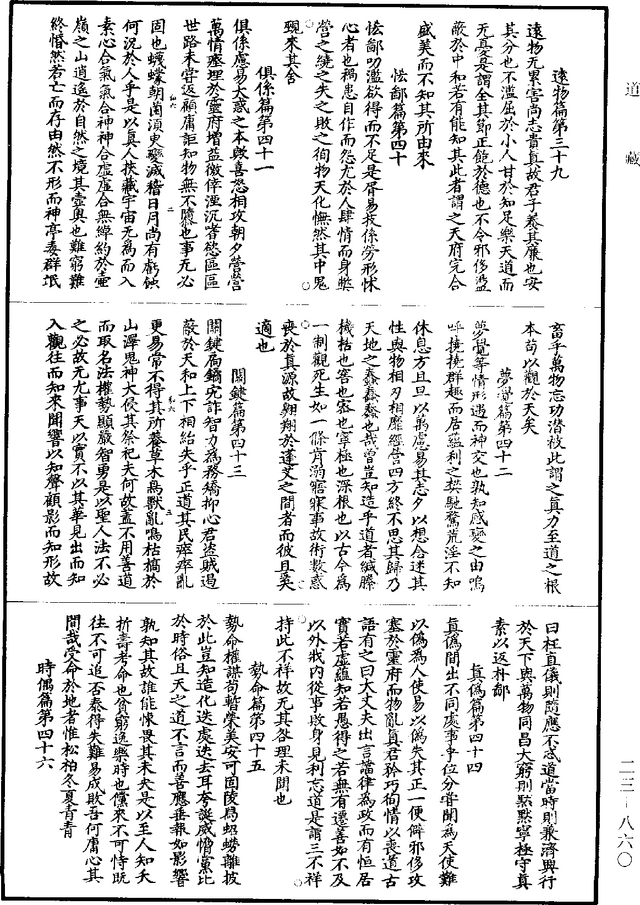 道藏
遠物篇第三十九
遠物无累害尚志貴真故君子養其廉也安
其分也不濫屈於小人甘於知足樂天道而
无憂是謂全其節正飽於德也不令邪侈濫
敵於中和若有能知其此者謂之天府完合
盛美而不知其所由來
怯鄙篇第四十
怯鄙叨濫欲得而不足是胥易技係勞形怵
心者也禍患自作而怨尤於人肆情而身弊
營之繞之失之敗之徇物天化憮然其中鬼
覡來其舍
俱係篇第四十一
俱係慮易大惑之本歟喜恐相攻朝夕營營
萬情塵埋於靈府增益徼倖涅沉嗜慾區區
世路未甞返顧庸詎知物無不隳也事无必
固也蠛蠓朝菌須臾變滅稽日月尚有虧蝕
何況於人乎是以真人挾藏宇宙无為而入
素心合氣氣合神神合虛虛合無綽約於壺
嶺之山逍遙於自然之境其靈輿也難窮難
終惛然若亡而存由然不形而神亭毒群氓
畜乎萬物忘功潜被此謂之真力至道之根
本苟以觀於天矣
夢覺篇第四十二
夢覺等情形遇而神交也孰知感變之由嗚
呼擾擾群趣而居蘊利之楔馳騖荒淫不知
休息方且旦以萬慮易其志夕以想合述其
性與物相刃相靡經營四方終不思其歸乃
天地之蠢蠢蠢也哉曾豈知造乎道者緘縢
機栝也窖也密也寧極也深根也以古今為
一制觀死生如一條肯溺寤寐事故術數惑
喪於真源故翔翔於蓬艾之間者而彼且奚
適也
關鍵篇第四十三
關鍵扃鐍宄詐智力為務矯抑心君盜賊遏
敵於天和上下相紿失乎正道其民瘁瘁亂
更易常不得其所養草木鳥獸亂鳴枯槁於
山澤鬼神大侵其祭祀夫何故蓋不用善道
而取名法權勢顯嚴智勇是以聖人法不必
之必故无尤事天以實不以其華見出而知
入觀往而知來聞響以知聲顧影而知形故
曰枉直儀則隨應不忒道當時則兼濟興行
於天下與萬物同昌大窮則點點寧極守真
素以返朴鄙
真偽篇第四十四
真偽間出不同處事爭位分甞聞為天使難
以偽為人使易以偽失其正一便僻邪侈攻
塞於靈府而物亂真君矜巧徇情以喪道古
語有之曰大丈夫出言讜律為政而有恒居
實若虛蘊知若愚得之若無有遷善如不及
以外戕內從事敗身見利忘道是謂三不祥
持此不祥故无其咎理未聞也
勢命篇第四十五
勢命權謀苟暫榮美安可固陵為蛁蟧離披
於此豈知造化迭處迭去耳夸誕威惰黨比
於時俗且天之道不言而善應垂報如影響
孰知其故誰能悚畏其未失是以至人知夭
折壽考命也貧窮逸樂時也儻來不可恃既
往不可追否泰得失難易成敗吾何庸心其
間哉受命於地者惟松柏冬夏青青
時偶篇第四十六
二三-八六〇